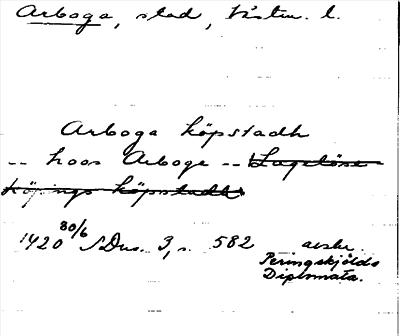 Arboga, stad, Västm. l.
Arboga köpstadh
-- hoos Arboge -- Lagelöse
Köpings köpstadh
1420 30/6 SDns. 3, s. 582 avskr.
Peringskjölds
Diplomata.